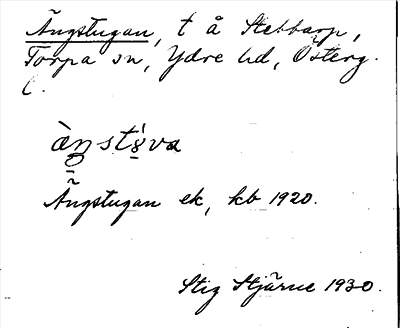 Ängstugan, t å Stebbarp,
Torpa sn, Ydre hd, Österg.
l.
àŋstúva
Ängstugan ek, kb 1920.
Stig Stjärne 1930.